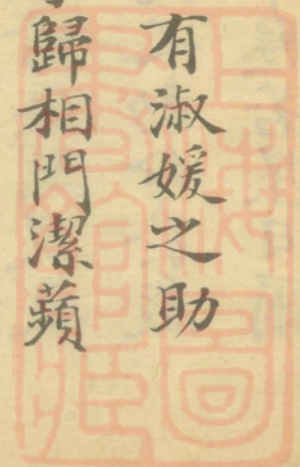 有淑媛之助
歸相門潔蘋